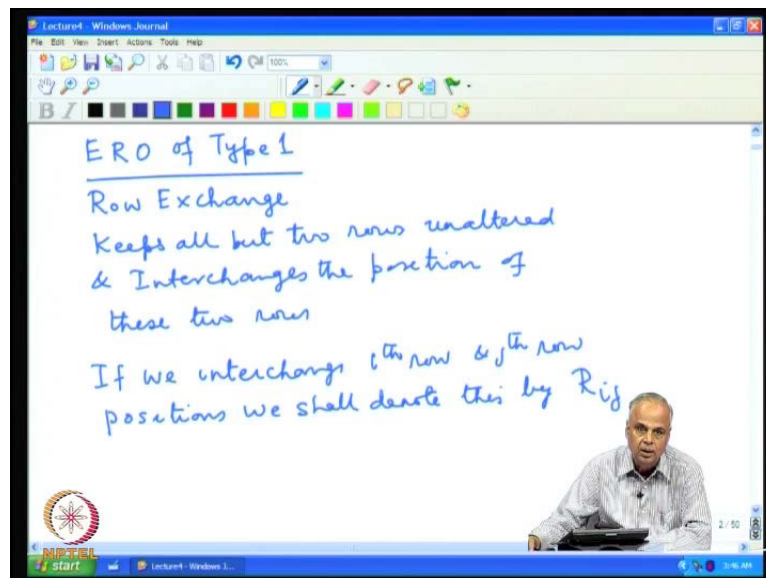 Lecture4 - Windows Journal
File Edit View Insert Actions Tools Help
100%
B I
ERO of Type 1
Row Exchange
Keeps all but two rows unaltered
& Interchanges the position of
these two rows
If we interchange ith row & jth row
positions we shall denote this by Rij
2 / 50
NPTEL
start Lecture4 - Windows J... 3:46 AM